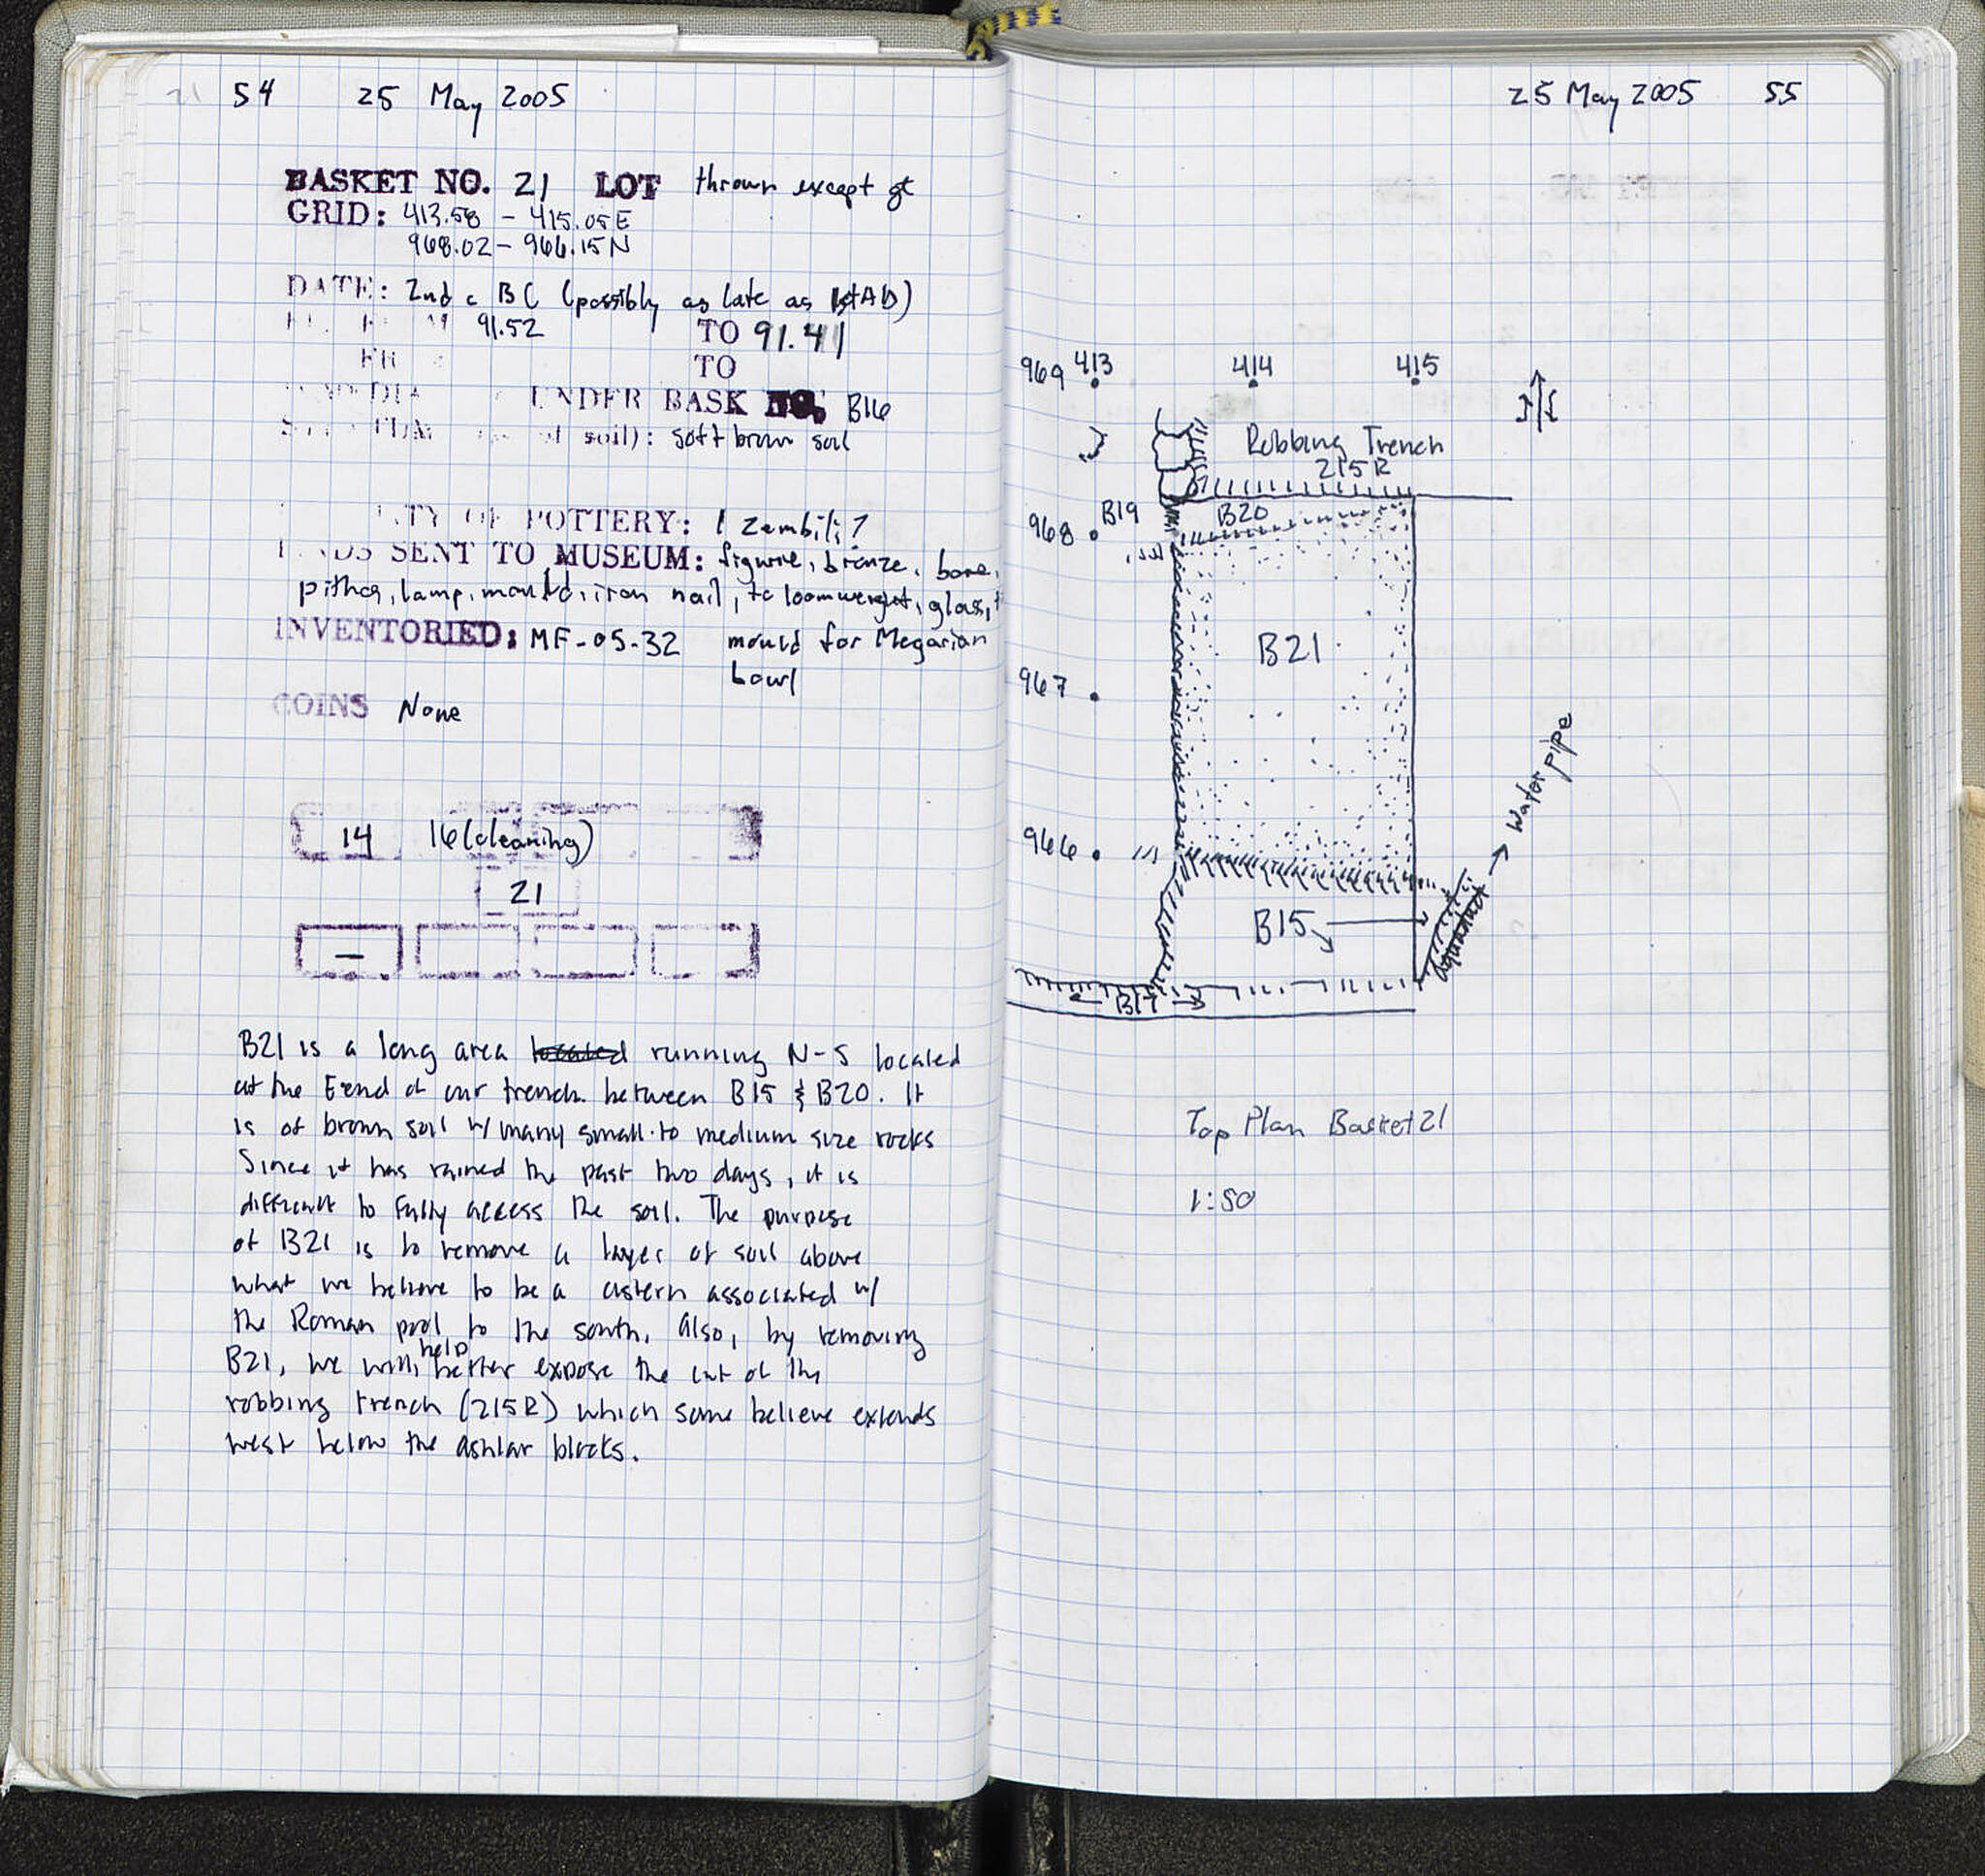 54 25 May 2005
BASKET NO. 21 LOT thrown except gt
GRID: 413.58 - 415.05E
968.02 - 966.15N
DATE: 2nd c BC (possibly as late as 1st AD)
91.52 TO 91.41
TO
UNDER BASK NO. B16
soil): soft brown soil
OF POTTERY: 1 zembili?
SENT TO MUSEUM: figurine, bronze, bone,
pithos, lamp, mould, iron nail, tc loomweight, glass,
INVENTORIED: MF-05-32 mould for Megarian
bowl
COINS None
14 16 (cleaning)
21
—
B21 is a long area located running N-S located
at the E end of our trench between B15 & B20. It
is of brown soil w/ many small to medium size rocks
Since it has rained the past two days, it is
difficult to fully access the soil. The purpose
of B21 is to remove a layer of soil above
what we believe to be a cistern associated w/
the Roman pool to the south. Also, by removing
B21, we will help better expose the cut of the
robbing trench (215R) which some believe extends
west below the ashlar blocks.
25 May 2005 55
969 413 414 415
Robbing Trench
215R
968 B19 B20
B21
967
Water pipe
966
B15
Aquaduct
B17
Top Plan Basket 21
1:50